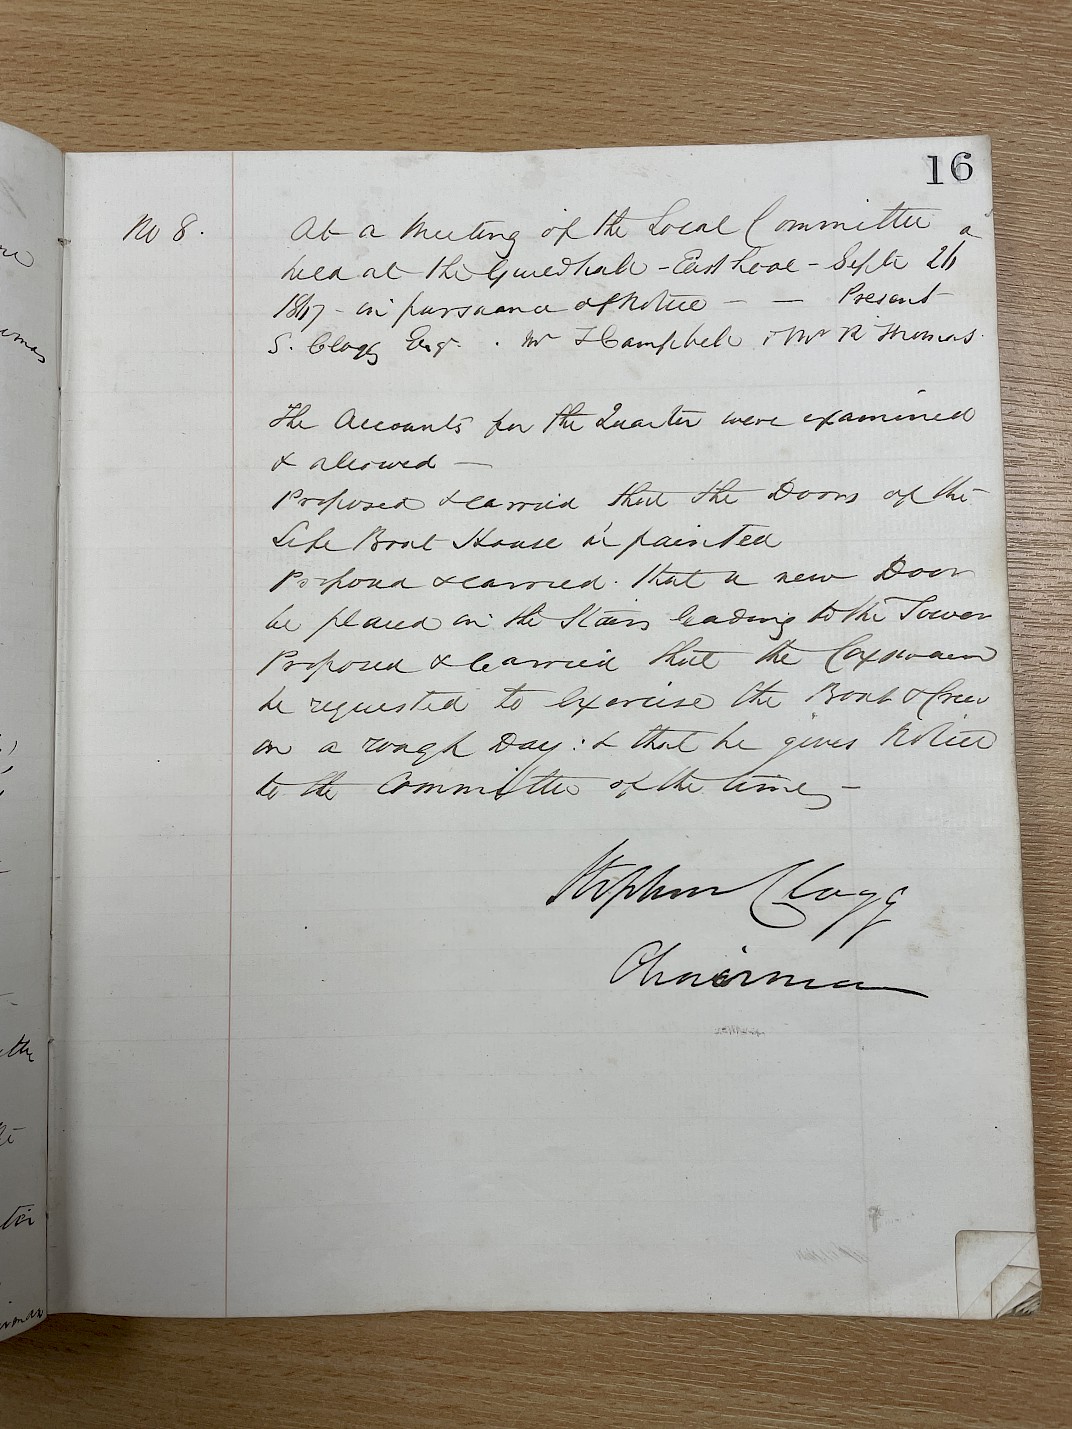 16
No 8.
At a Meeting of the Local Committee
held at the Guildhall - East Looe - Septr 26
1867 - in pursuance of Notice - — Present
S. Clogg Esqr. Mr T Campbell & Mr R Thomas
The Accounts for the Quarter were examined
& allowed —
Proposed & carried that the Doors of the
Life Boat House be painted
Proposed & carried that a new Door
be placed on the Stairs leading to the Tower
Proposed & Carried that the Coxswain
be requested to Exercise the Boat & Crew
on a rough Day: & that he gives Notice
to the Committee of the time —
Stephen Clogg
Chairman